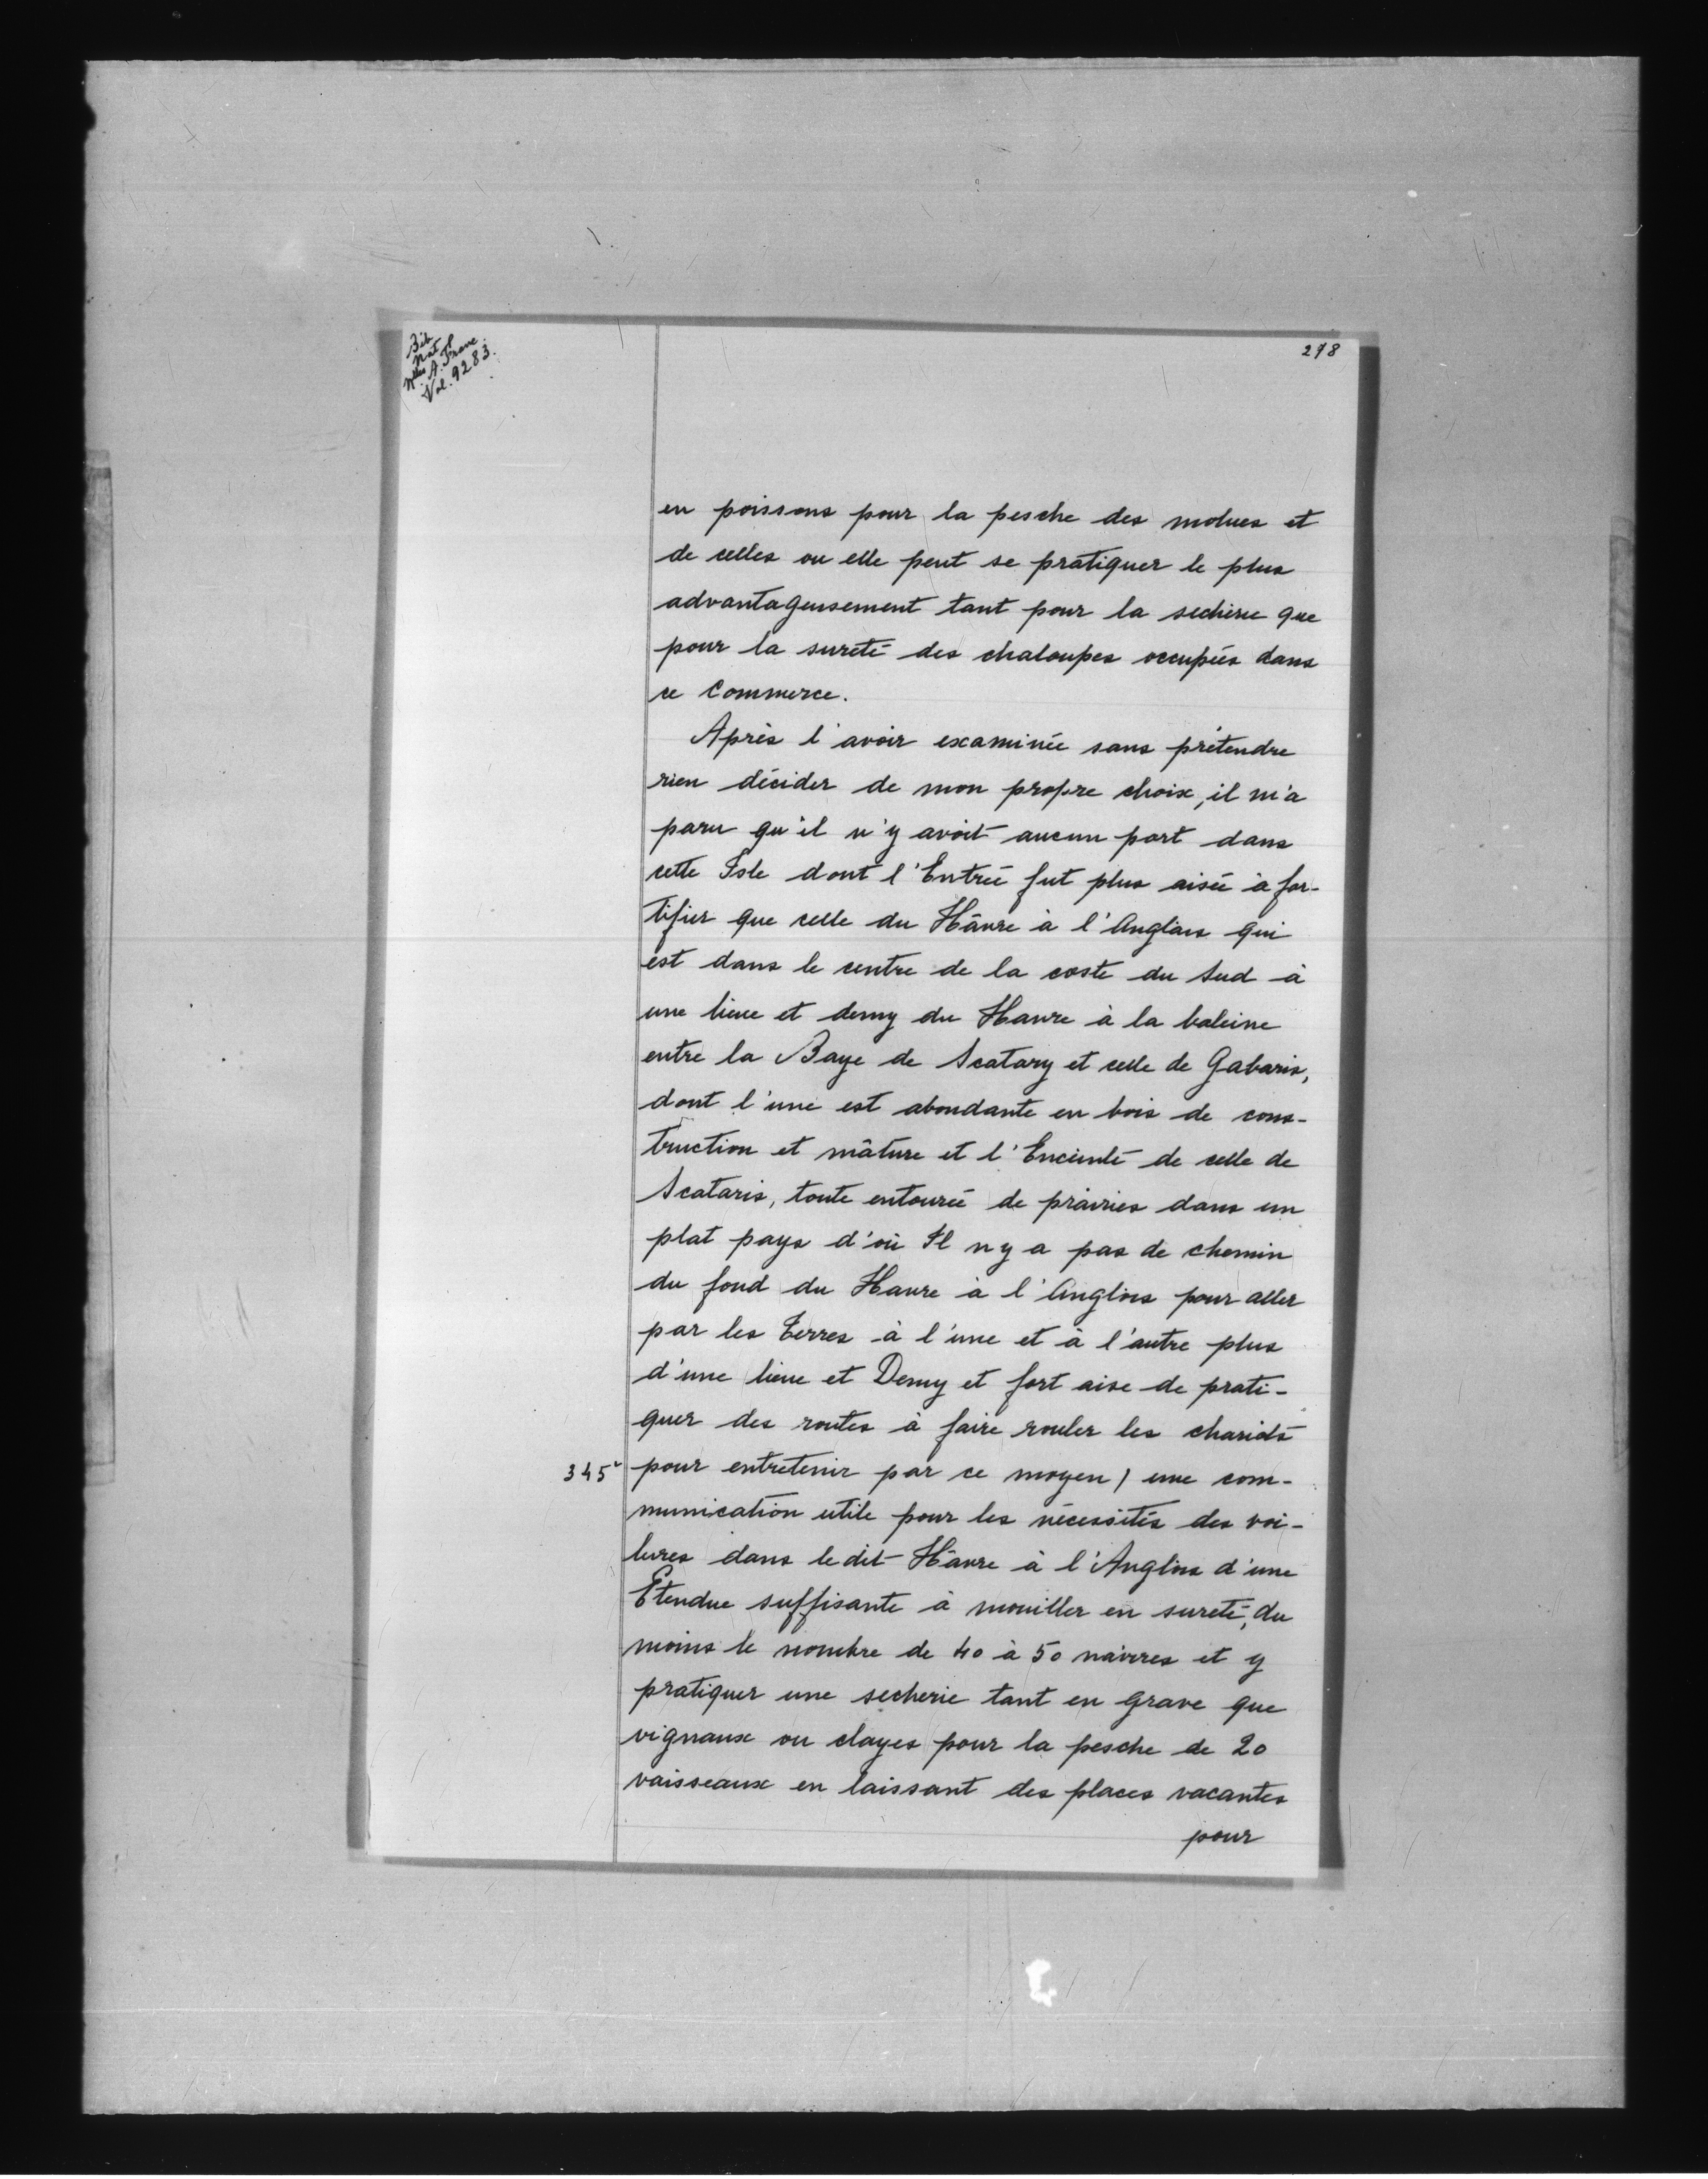 Bib.
Natl
Nlles A. Franc.
Vol. 9283.
278
en poissons pour la pesche des molues et
de celles ou elle peut se pratiquer le plus
advantageusement tant pour la secherie que
pour la sureté des chaloupes occupées dans
ce Commerce.
Après l'avoir examinée sans prétendre
rien décider de mon propre choix, il m'a
paru qu'il n'y avoit aucun port dans
cette Isle dont l'Entrée fut plus aisée à for-
tifier que celle du Hâvre à l'Anglais qui
est dans le centre de la coste du Sud à
une lieue et demy du Havre à la baleine
entre la Baye de Scatary et celle de Gabaris,
dont l'une est abondante en bois de cons-
truction et mâture et l'Enceinte de celle de
Scataris, toute entourée de prairies dans un
plat pays d'où Il n y a pas de chemin
du fond du Havre à l'Anglois pour aller
par les Terres à l'une et à l'autre plus
d'une lieue et Demy et fort aise de prati-
quer des routes à faire rouler les chariots
345v pour entretenir par ce moyen / une com-
munication utile pour les nécessités des voi-
lures dans le dit Hâvre à l'Anglois d'une
Etendue suffisante à mouiller en sureté, du
moins le nombre de 40 à 50 navires et y
pratiquer une secherie tant en grave que
vignaux ou clayes pour la pesche de 20
vaisseaux en laissant des places vacantes
pour